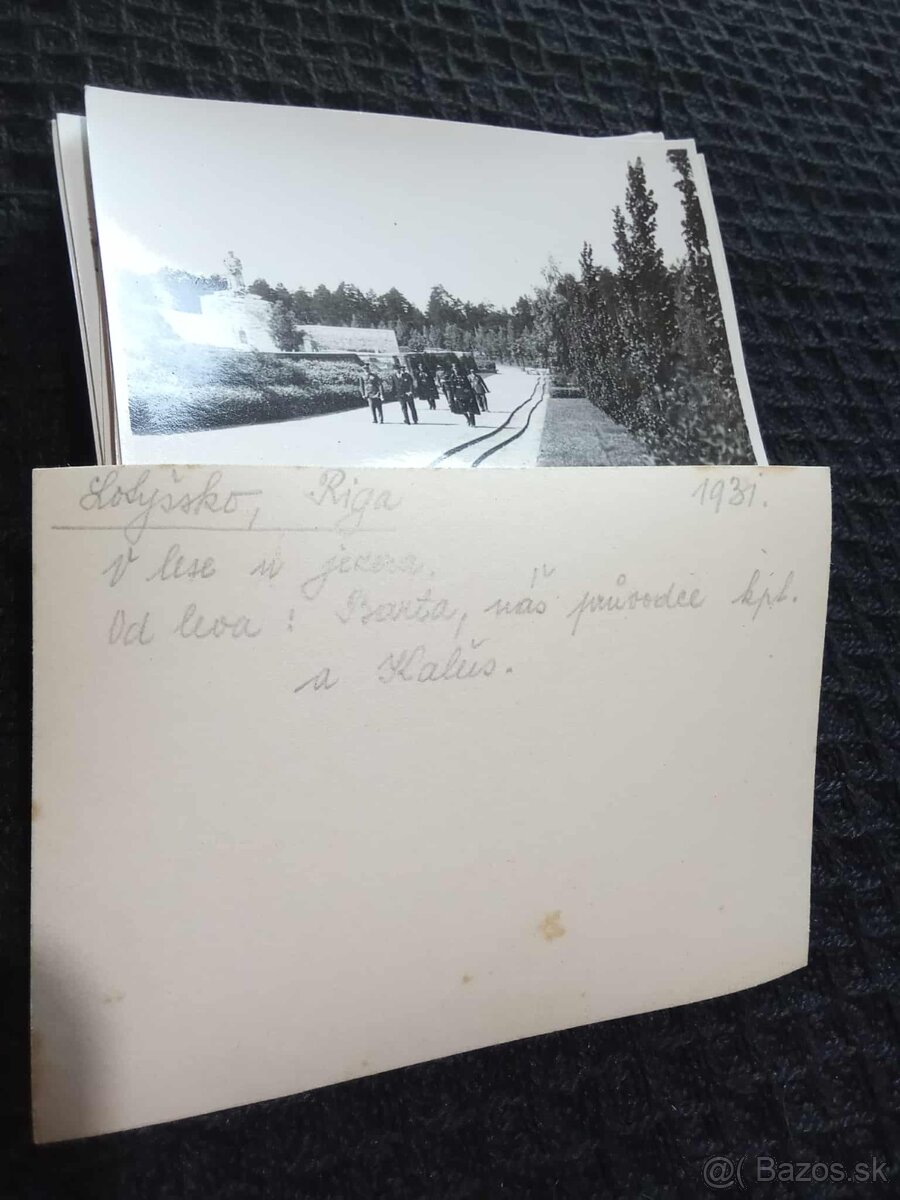 Lotyšsko, Riga 1931.
V lese u jezera.
Od leva: Barta, náš průvodce kpt.
a Kalús.
@( Bazos.sk